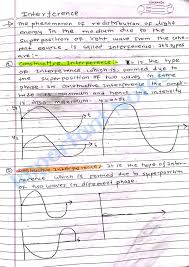 Interference
→ The phenomenon of redistribution of light
energy in the medium due to the
superposition of light wave from the
source, is called interference. It's types
are:-
① Constructive Interference:- It is the type
of Interference which is formed due to
the superposition of two waves in same
phase. In Constructive Interference the
maximum and hence the intensity
is also maximum.
② Destructive Interference: It is the type of
which is formed due to superposition
of two waves in different phase.